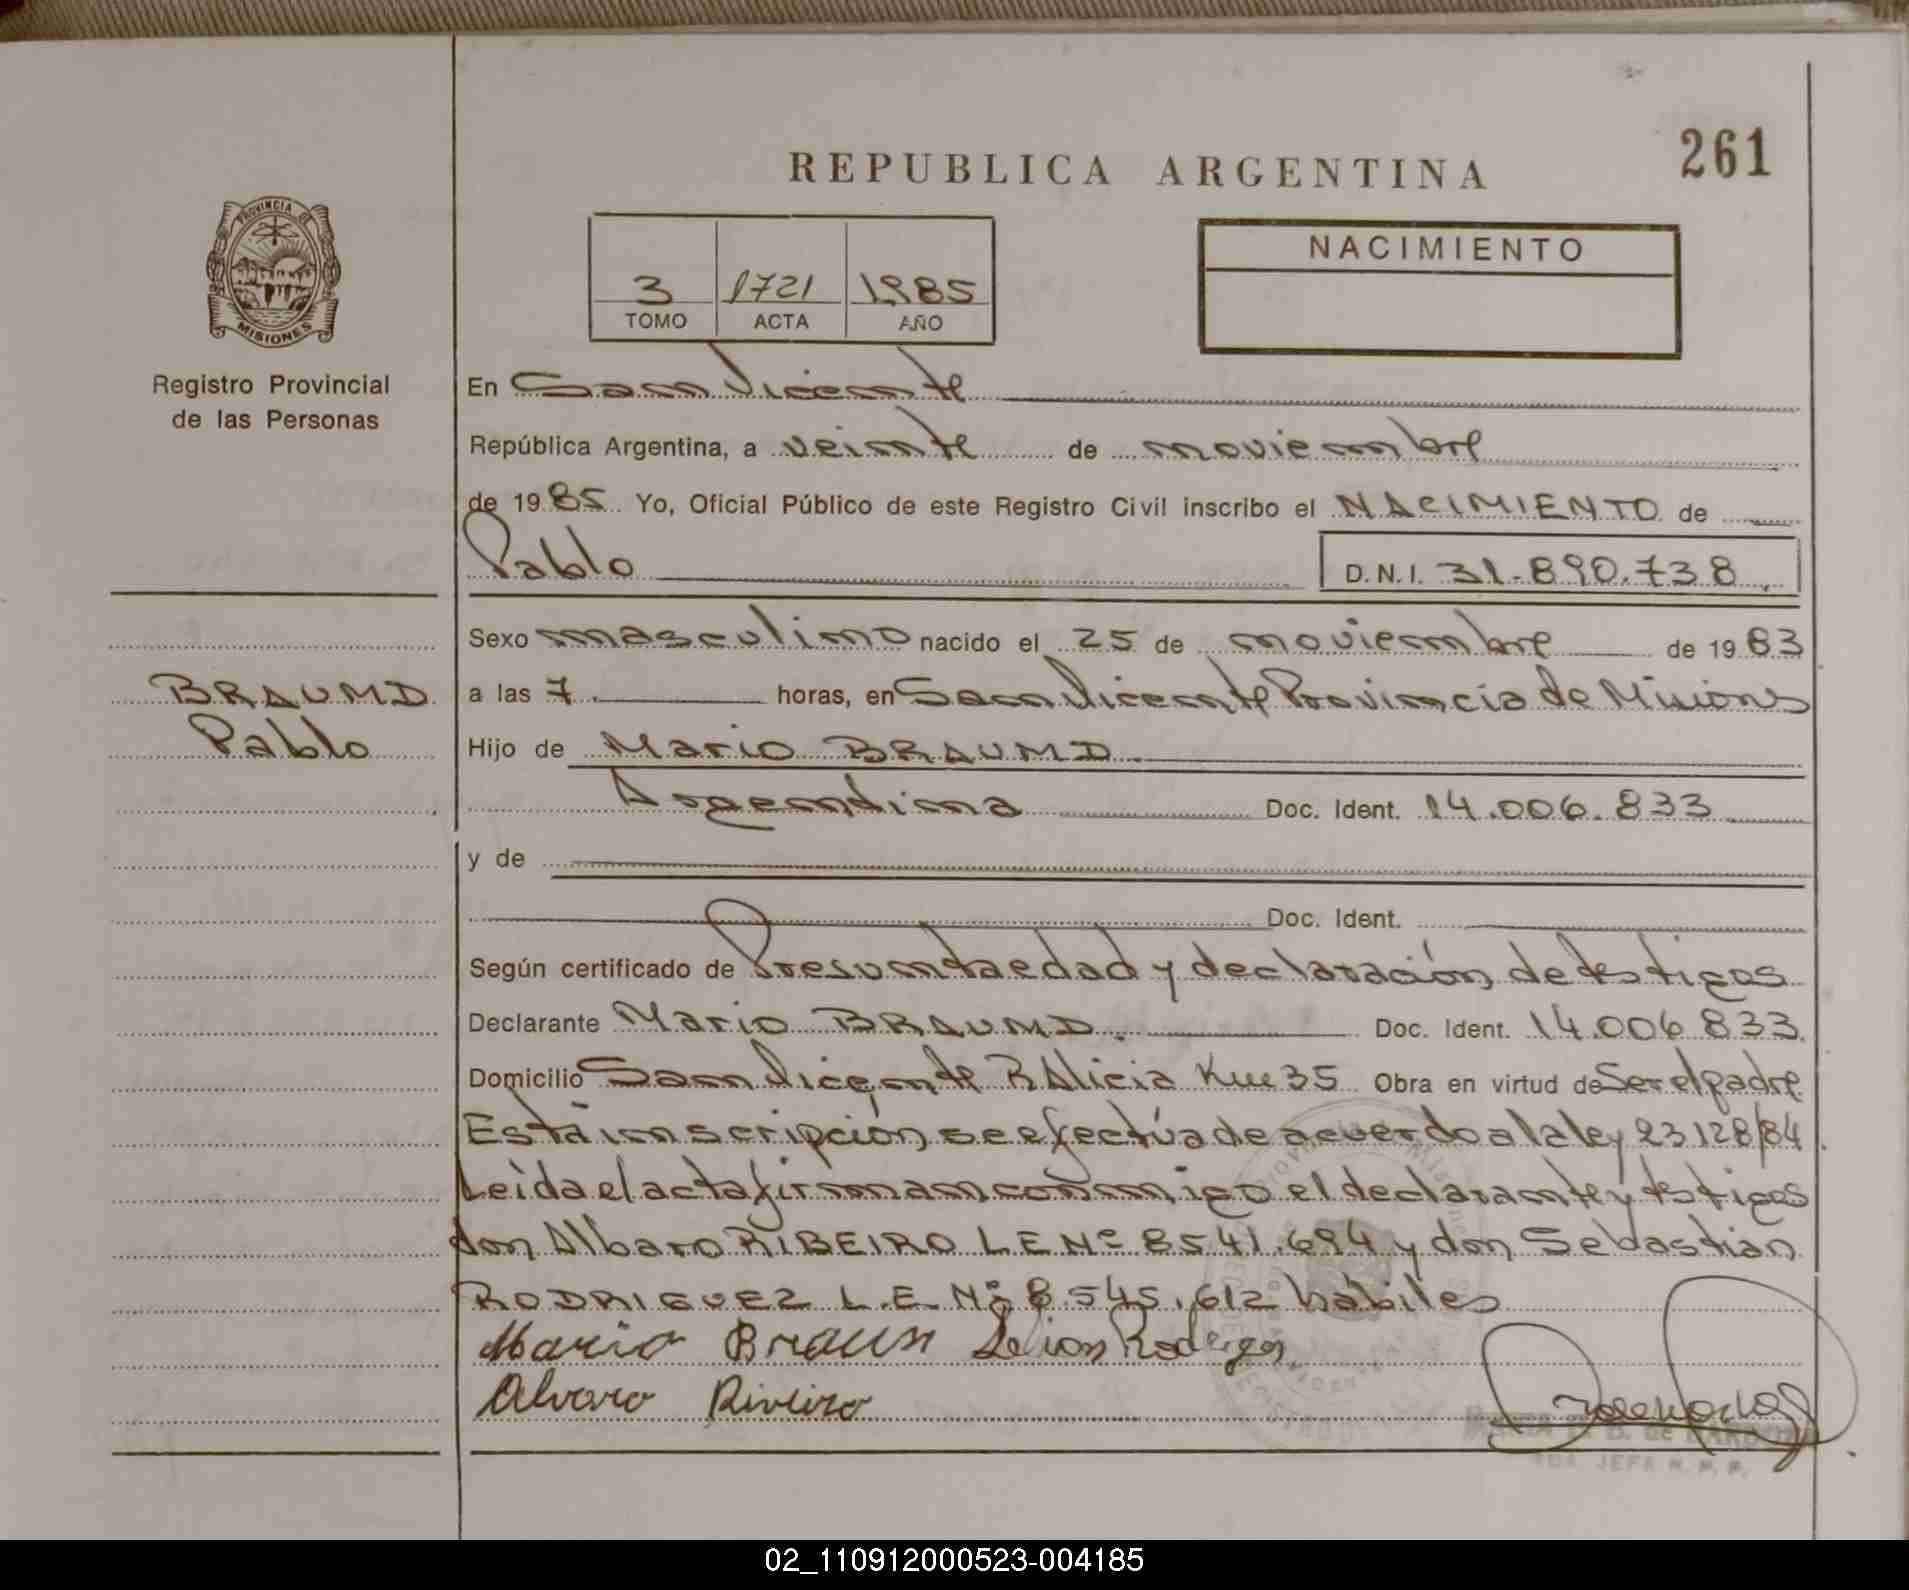 261
REPUBLICA ARGENTINA
PROVINCIA DE
MISIONES
NACIMIENTO
3 1721 1985
TOMO ACTA AÑO
Registro Provincial
de las Personas
En San Vicente
República Argentina, a veinte de noviembre
de 1985. Yo, Oficial Público de este Registro Civil inscribo el NACIMIENTO de
Pablo D.N.I. 31.890.738
Sexo masculino nacido el 25 de noviembre de 1983
BRAUND
Pablo
a las 7 horas, en San Vicente Provincia de Misiones
Hijo de Mario BRAUND
Argentina Doc. Ident. 14.006.833
y de
Doc. Ident.
Según certificado de Presunta edad y declaración de testigos
Declarante Mario BRAUND. Doc. Ident. 14.006.833.
Domicilio San Vicente R Alicia Km 35 Obra en virtud de Ser el padre
Esta inscripción se efectúa de acuerdo a la ley 23128/84
Leída el acta firman conmigo el declarante y testigos
don Albaro RIBEIRO L E Nº 8541.694 y don Sebastian
RODRIGUEZ L.E. Nº 8.545.612 habiles
Mario Braun
Alvaro Riveiro
JEFA R. P. P.
02_110912000523-004185